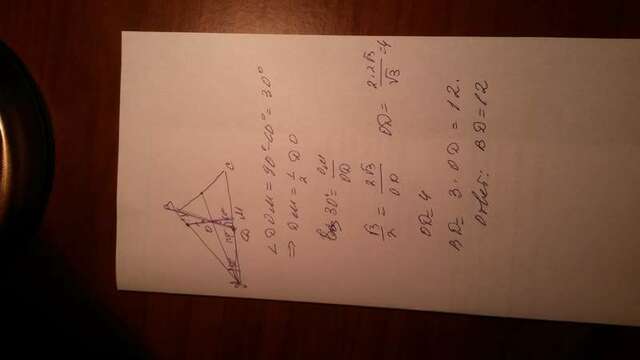 B
O
C
M
D
∠DOM = 90°-60° = 30°
⇒ DM = 1/2 DO
Cos 30° = OM/OD
√3/2 = 2√3/OD OD = 2·2√3/√3 = 4
OD = 4
BD = 3·OD = 12.
Ответ: BD = 12